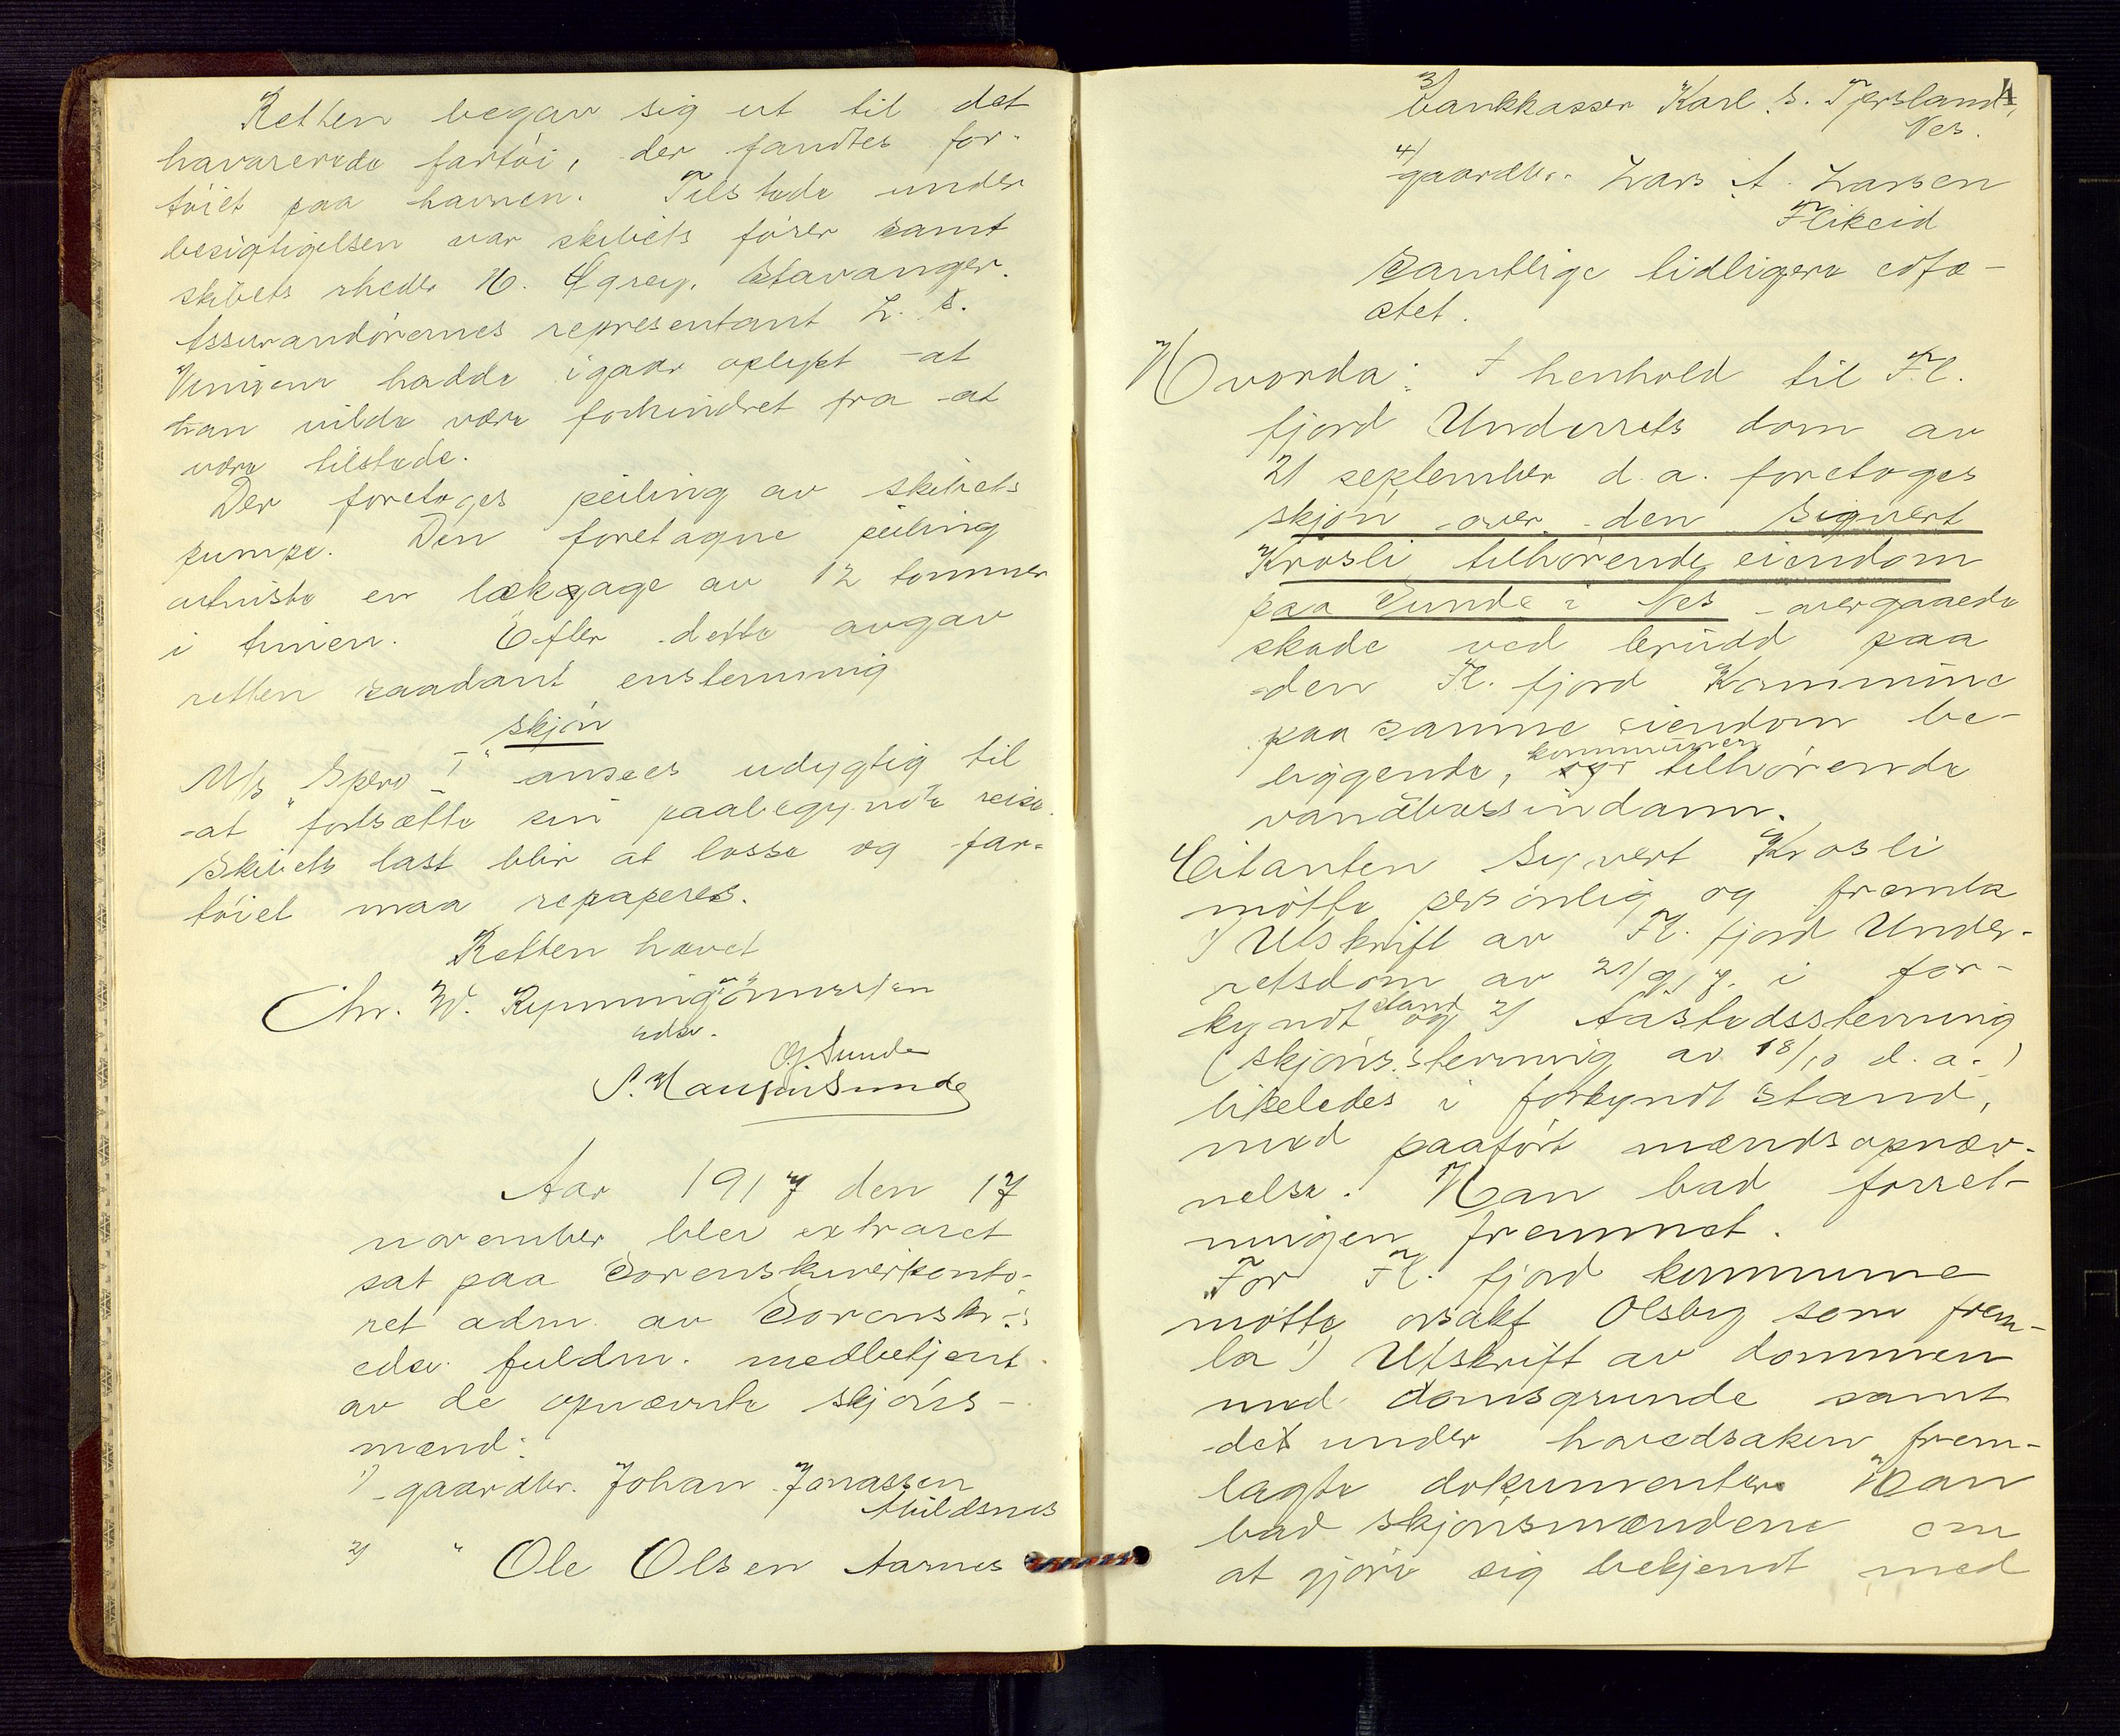 Retten begav sig ut til det
havarerede fartöi, der fandtes for-
töiet paa havnen. Tilstede under
besigtigelsen var skibets förer samt
skibets rheder H. Stavanger.
Assurandörernes representant L. S.
hadde igaar oplyst at
han vilde være forhindret fra at
være tilstede.
Der foretoges peiling av skibets
pumpe. Den foretagne peiling
utviste en lækgage av 12 tommer
i timen. Efter dette avgav
retten saadant enstemmig
skjön
M/s "Spero I" ansees udygtig til
at fortsætte sin paabegyndte reise.
Skibets last blir at losse og far-
töiet maa repareres.
Retten hævet
Chr. W.
edsv.
O. J. Sunde
Sunde
Aar 1917 den 17
november blev extraret
sat paa Sorenskriverkonto-
ret adm. av Sorenskr.s
edsv. fuldm. medbetjent
av de opnævnte skjöns-
mænd:
1) gaardbr. Johan Jonassen
Abildsnes
2) " Ole Olsen Aarnes
4
3) bankkasser Karl S. Tjersland,
Nes.
4) gaardbr. Lars A. Larsen
Flikeid
Samtlige tidligere edfæ-
stet.
Hvorda: I henhold til Fl.
fjord Underrets dom av
21 september d.a. foretoges
skjön over den Sigvert
Krosli tilhörende eiendom
paa Sunde i Nes overgaaede
skade ved brudd paa
den Fl. fjord Kommune
paa samme eiendom be-
liggende, kommunen tilhörende
vandbassindam.
Citanten Sigvert Krosli
mötte personlig og fremla
1) Utskrift av Fl. fjord Under-
retsdom av 21/9 17. i for-
kyndt stand og 2) Aastedsstevning
(skjönsstevning av 18/10 d.a.)
likeledes i forkyndt stand,
med paafört mændsopnæv-
nelse. Han bad forret-
ningen fremmet.
For Fl. fjord kommune
mötte orsakf Olsby som frem-
la 1) Utskrift av dommen
med domsgrunde samt
det under hovedsaken frem-
lagte dokumenter. Han
bad skjönsmændene om
at gjöre sig bekjendt med